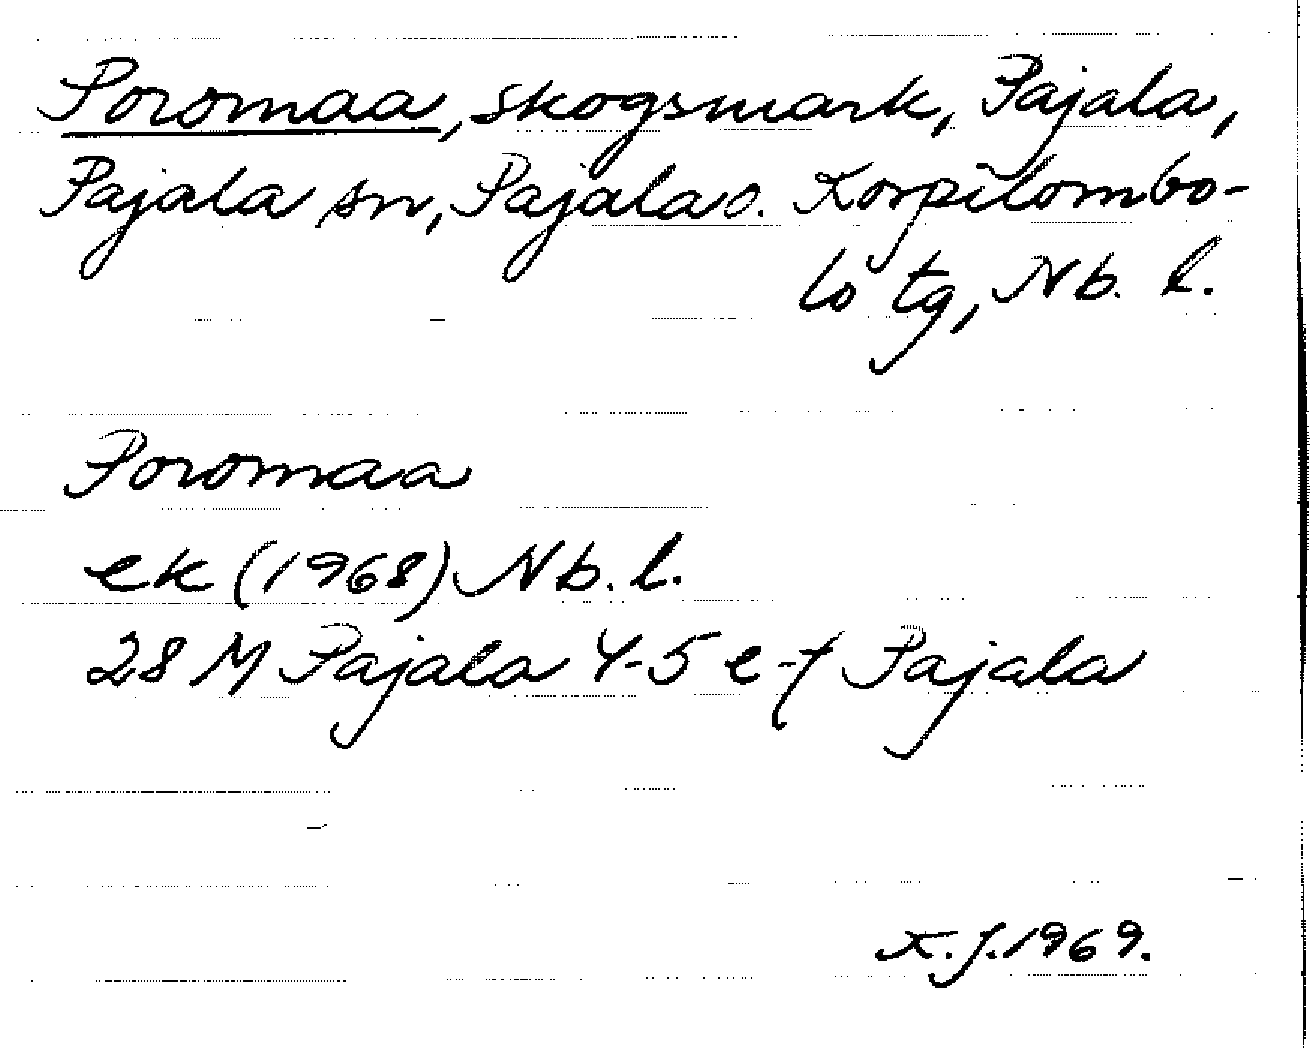 Poromaa, skogsmark, Pajala,
Pajala sn, Pajala o. Korpilombo-
lo tg, Nb. l.
Poromaa
ek (1968) Nb. l.
28 M Pajala 4-5 e-f Pajala
K.J. 1969.